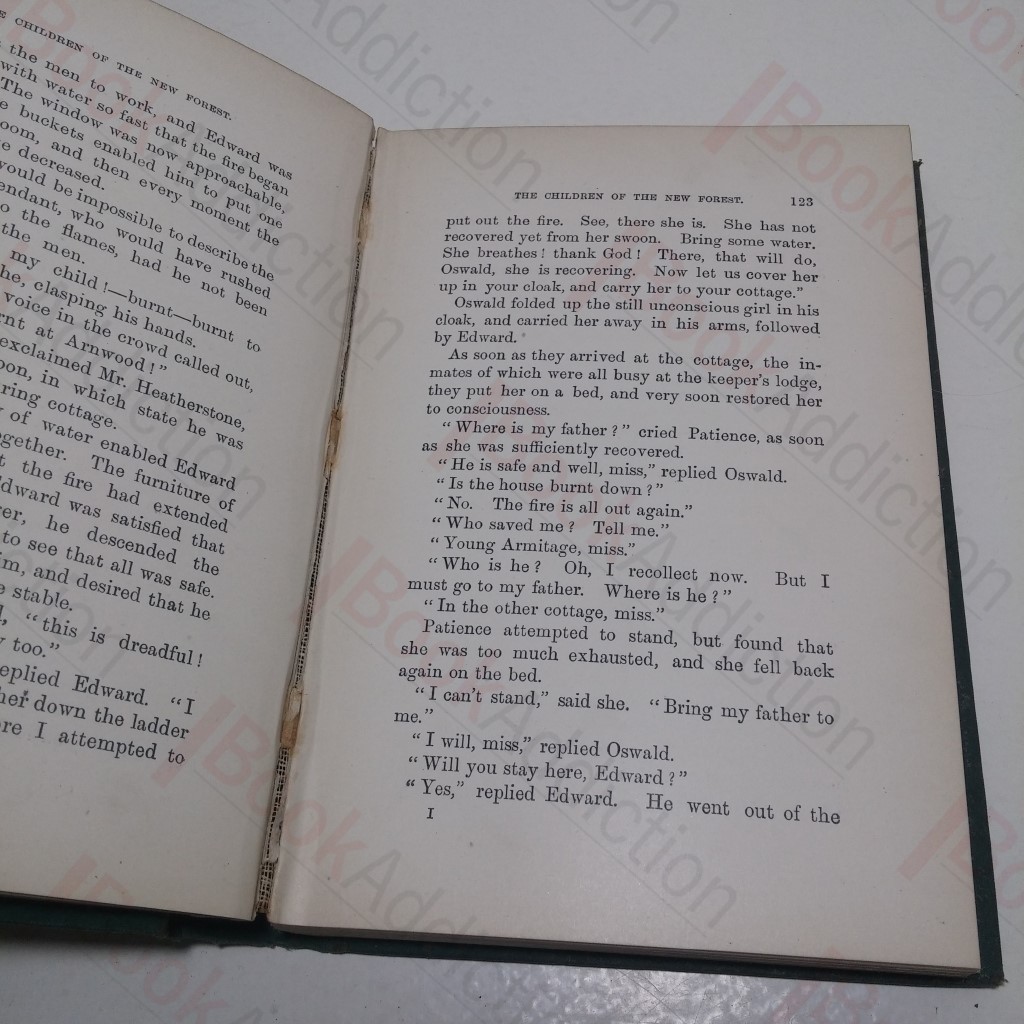 E CHILDREN OF THE NEW FOREST.
the men to work, and Edward was
with water so fast that the fire began
The window was now approachable,
buckets enabled him to put one
oom, and then every moment the
decreased.
would be impossible to describe the
endant, who would have rushed
o the flames, had he not been
the men.
my child!—burnt—burnt to
he, clasping his hands.
voice in the crowd called out,
rnt at Arnwood!"
exclaimed Mr. Heatherstone,
oon, in which state he was
ring cottage.
of water enabled Edward
ogether. The furniture of
the fire had extended
dward was satisfied that
er, he descended the
to see that all was safe.
im, and desired that he
e stable.
"this is dreadful!
too."
eplied Edward. "I
her down the ladder
re I attempted to
THE CHILDREN OF THE NEW FOREST. 123
put out the fire. See, there she is. She has not
recovered yet from her swoon. Bring some water.
She breathes! thank God! There, that will do,
Oswald, she is recovering. Now let us cover her
up in your cloak, and carry her to your cottage."
Oswald folded up the still unconscious girl in his
cloak, and carried her away in his arms, followed
by Edward.
As soon as they arrived at the cottage, the in-
mates of which were all busy at the keeper's lodge,
they put her on a bed, and very soon restored her
to consciousness.
"Where is my father?" cried Patience, as soon
as she was sufficiently recovered.
"He is safe and well, miss," replied Oswald.
"Is the house burnt down?"
"No. The fire is all out again."
"Who saved me? Tell me."
"Young Armitage, miss."
"Who is he? Oh, I recollect now. But I
must go to my father. Where is he?"
"In the other cottage, miss."
Patience attempted to stand, but found that
she was too much exhausted, and she fell back
again on the bed.
"I can't stand," said she. "Bring my father to
me."
"I will, miss," replied Oswald.
"Will you stay here, Edward?"
"Yes," replied Edward. He went out of the
I
BookAddiction